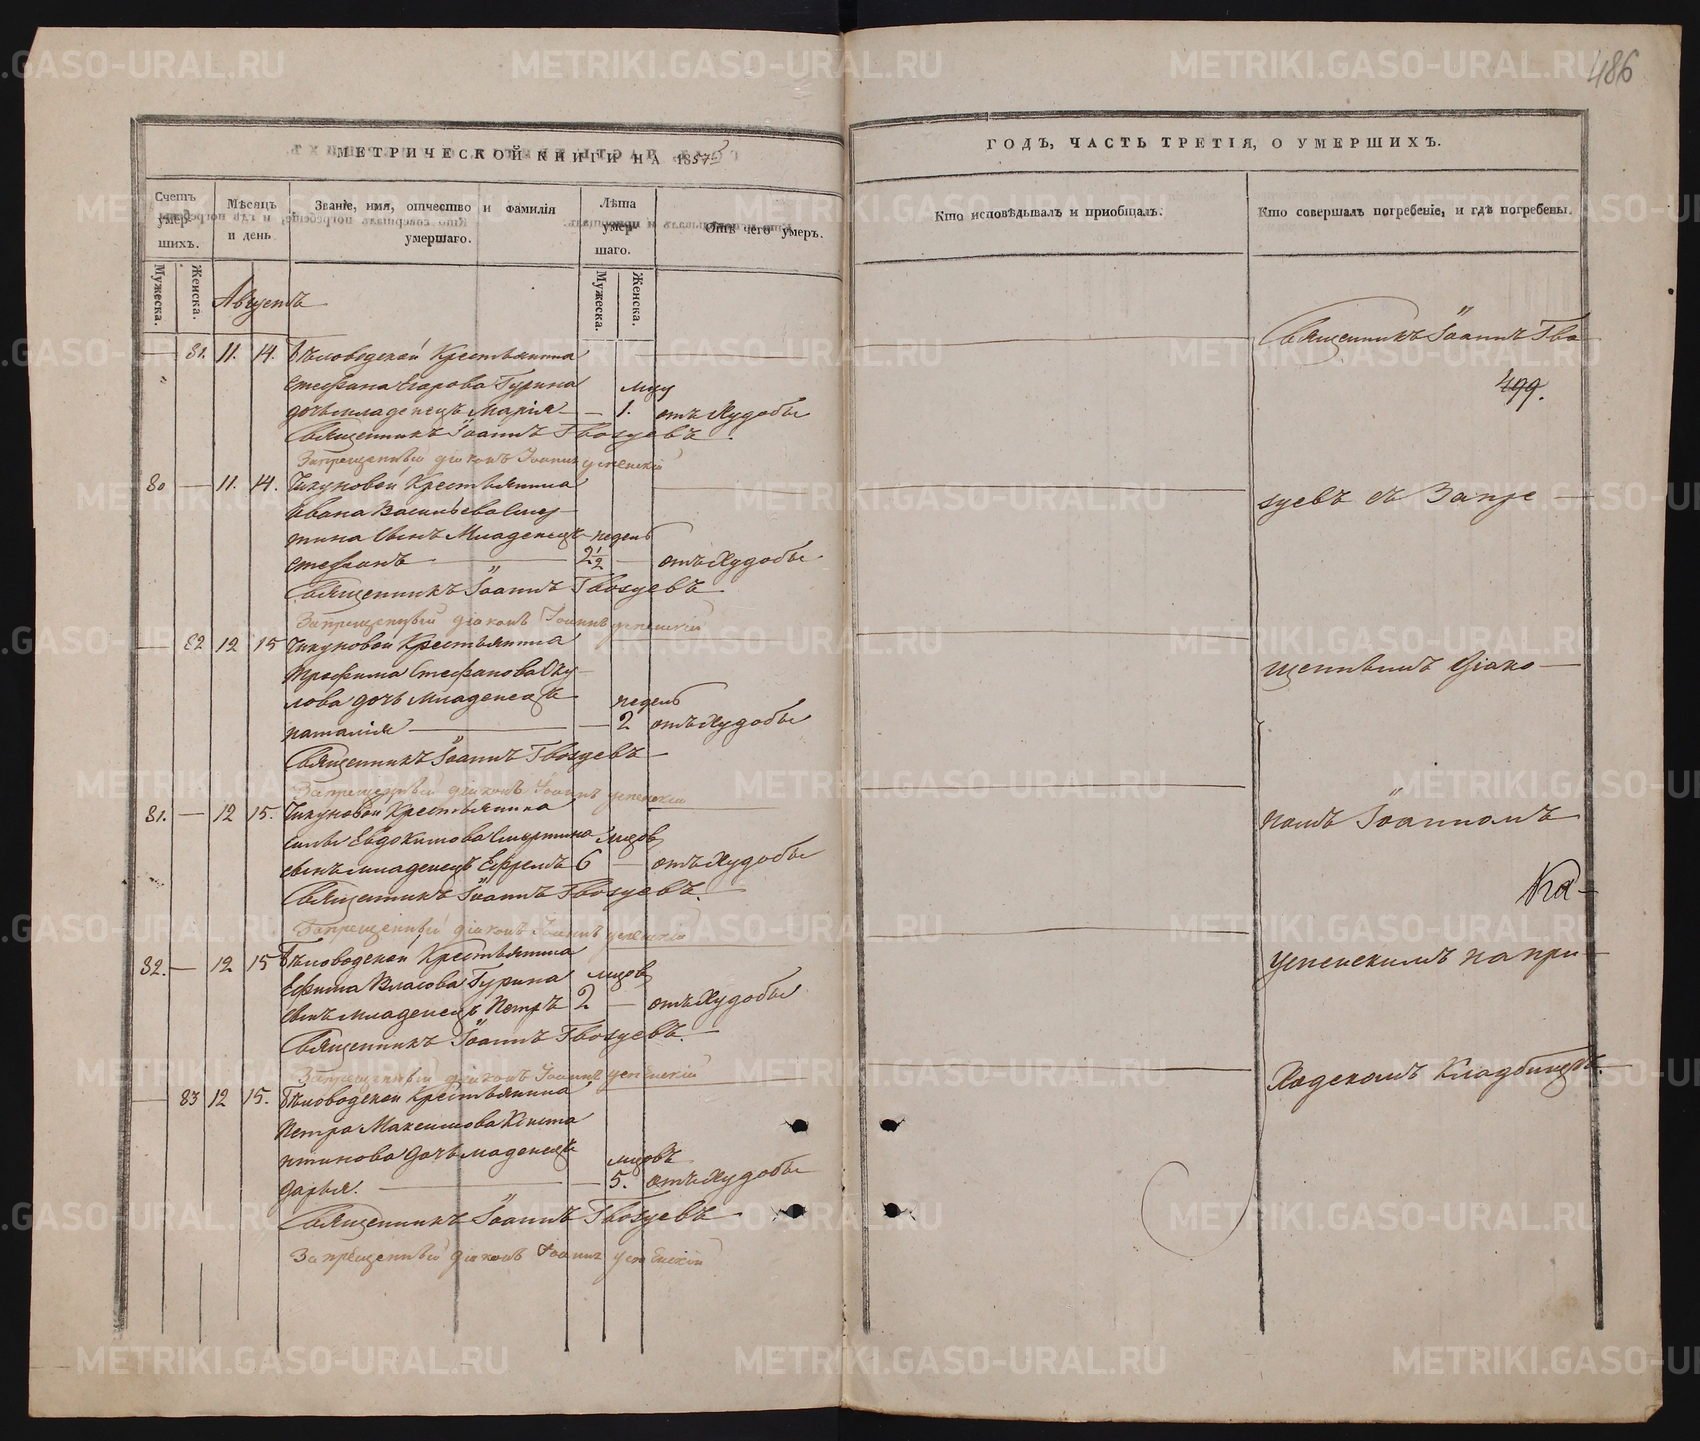 486
МЕТРИЧЕСКОЙ КНИГИ НА 1857й
ГОДЪ, ЧАСТЬ ТРЕТІЯ, О УМЕРШИХЪ.
Счетъ умер- шихъ.
Мѣсяцъ и день
Званіе, имя, отчество и фамилія умершаго.
Лѣта умер- шаго.
Отъ чего умеръ.
Кто исповѣдывалъ и пріобщалъ.
Кто совершалъ погребеніе, и гдѣ погребены.
Мужеска.
Женска.
Мужеска.
Женска.
Августъ
— 81. 11. 14. Бѣловодской Крестьянина
Стефана Егорова Гурина мцу
дочь младенецъ Марія — 1. отъ Худобы
Священникъ Іоаннъ Гвоздевъ.
Запрещенный діаконъ Іоаннъ Успенскій
80 — 11. 14. Чикуновой Крестьянина
Ивана Васильева
тина сынъ Младенецъ недель
Стефанъ — 2½ — отъ Худобы
Священникъ Іоаннъ Гвоздевъ
Запрещенный діаконъ Іоаннъ Успенскій
— 82 12 15 Чикуновой Крестьянина
Трофима Стефанова
лова дочь Младенецъ недель
Наталія — 2 отъ Худобы
Священникъ Іоаннъ Гвоздевъ —
Запрещенный діаконъ Іоаннъ Успенскій
81. — 12 15. Чикуновой Крестьянина
Силы Евдокимова мцов
сынъ младенецъ Ефремъ 6 — отъ Худобы
Священникъ Іоаннъ Гвоздевъ. —
Запрещенный діаконъ Іоаннъ Успенскій
82. — 12 15 Бѣловодской Крестьянина
Ефима Власова Гурина мцов
сынъ младенецъ Петръ 2 — отъ Худобы
Священникъ Іоаннъ Гвоздевъ. —
Запрещенный діаконъ Іоаннъ Успенскій
— 83 12 15. Бѣловодской Крестьянина
Петра Максимова Конста
нтинова дочь младенецъ мцовъ
Дарья. — 5. отъ Худобы
Священникъ Іоаннъ Гвоздевъ —
Запрещенный діаконъ Іоаннъ Успенскій
Священникъ Іоаннъ Гво
499.
здевъ съ Запре —
щеннымъ Діако —
номъ Іоанномъ
На —
Успенскимъ на при —
ходскомъ Кладбищѣ.
METRIKI.GASO-URAL.RU